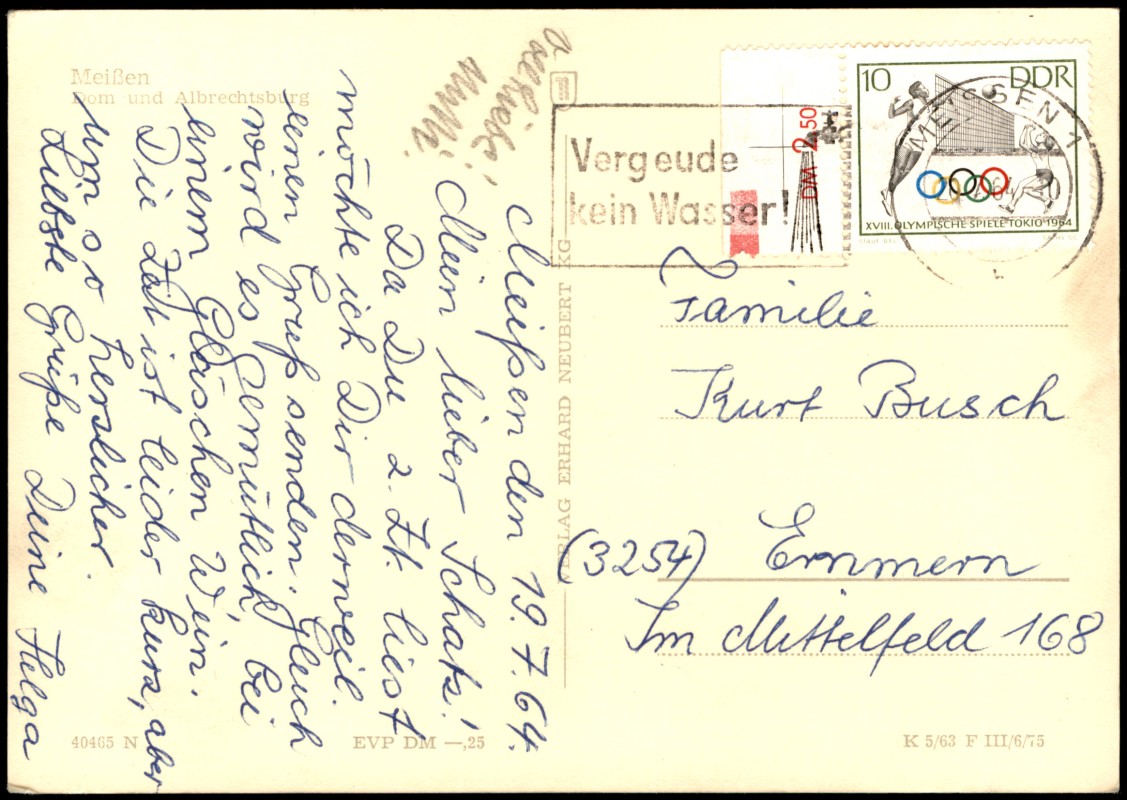 Meißen
Dom und Albrechtsburg
Meißen den 19.7.64.
Mein lieber Schatz!
Da Du z. Zt. liest
möchte ich Dir derweil
einen Gruß senden. Gleich
wird es gemütlich, bei
einem Gläschen Wein.
Die Zeit ist leider kurz, aber
um so herzlicher.
Liebste Grüße Deine Helga
VERLAG ERHARD NEUBERT KG
Vergeude
kein Wasser!
DM 2.50
10 DDR
XVIII. OLYMPISCHE SPIELE TOKIO 1964
MEISSEN 1
Familie
Kurt Busch
(3254) Emmern
Im Mittelfeld 168
40465 N
EVP DM —,25
K 5/63 F III/6/75